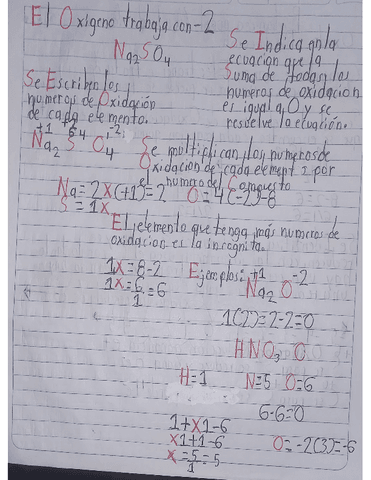 El Oxigeno trabaja con -2
Na2SO4
Se Indica en la
ecuación que la
Suma de todas los
numeros de oxidación
es igual a O y se
resuelve la ecuación.
Se Escriben los
numeros de Oxidación
de cada elemento.
+1 +6 -2
Na2 S O4
Se multiplican los numeros de
Oxidación de cada element por
el numero del Compuesto
Na=2x(+1)=2 O=4(-2)=8
S=1x
El elemento que tenga más numeros de
oxidación es la incognita.
1x=8-2
1x=6=6
1
Ejemplos: +1 -2
Na2 O
1(2)=2-2=0
HNO3 O
H=1 N=5 O=6
6-6=0
1+x1-6
x1+1-6
x=5=5
1
O=-2(3)=-6